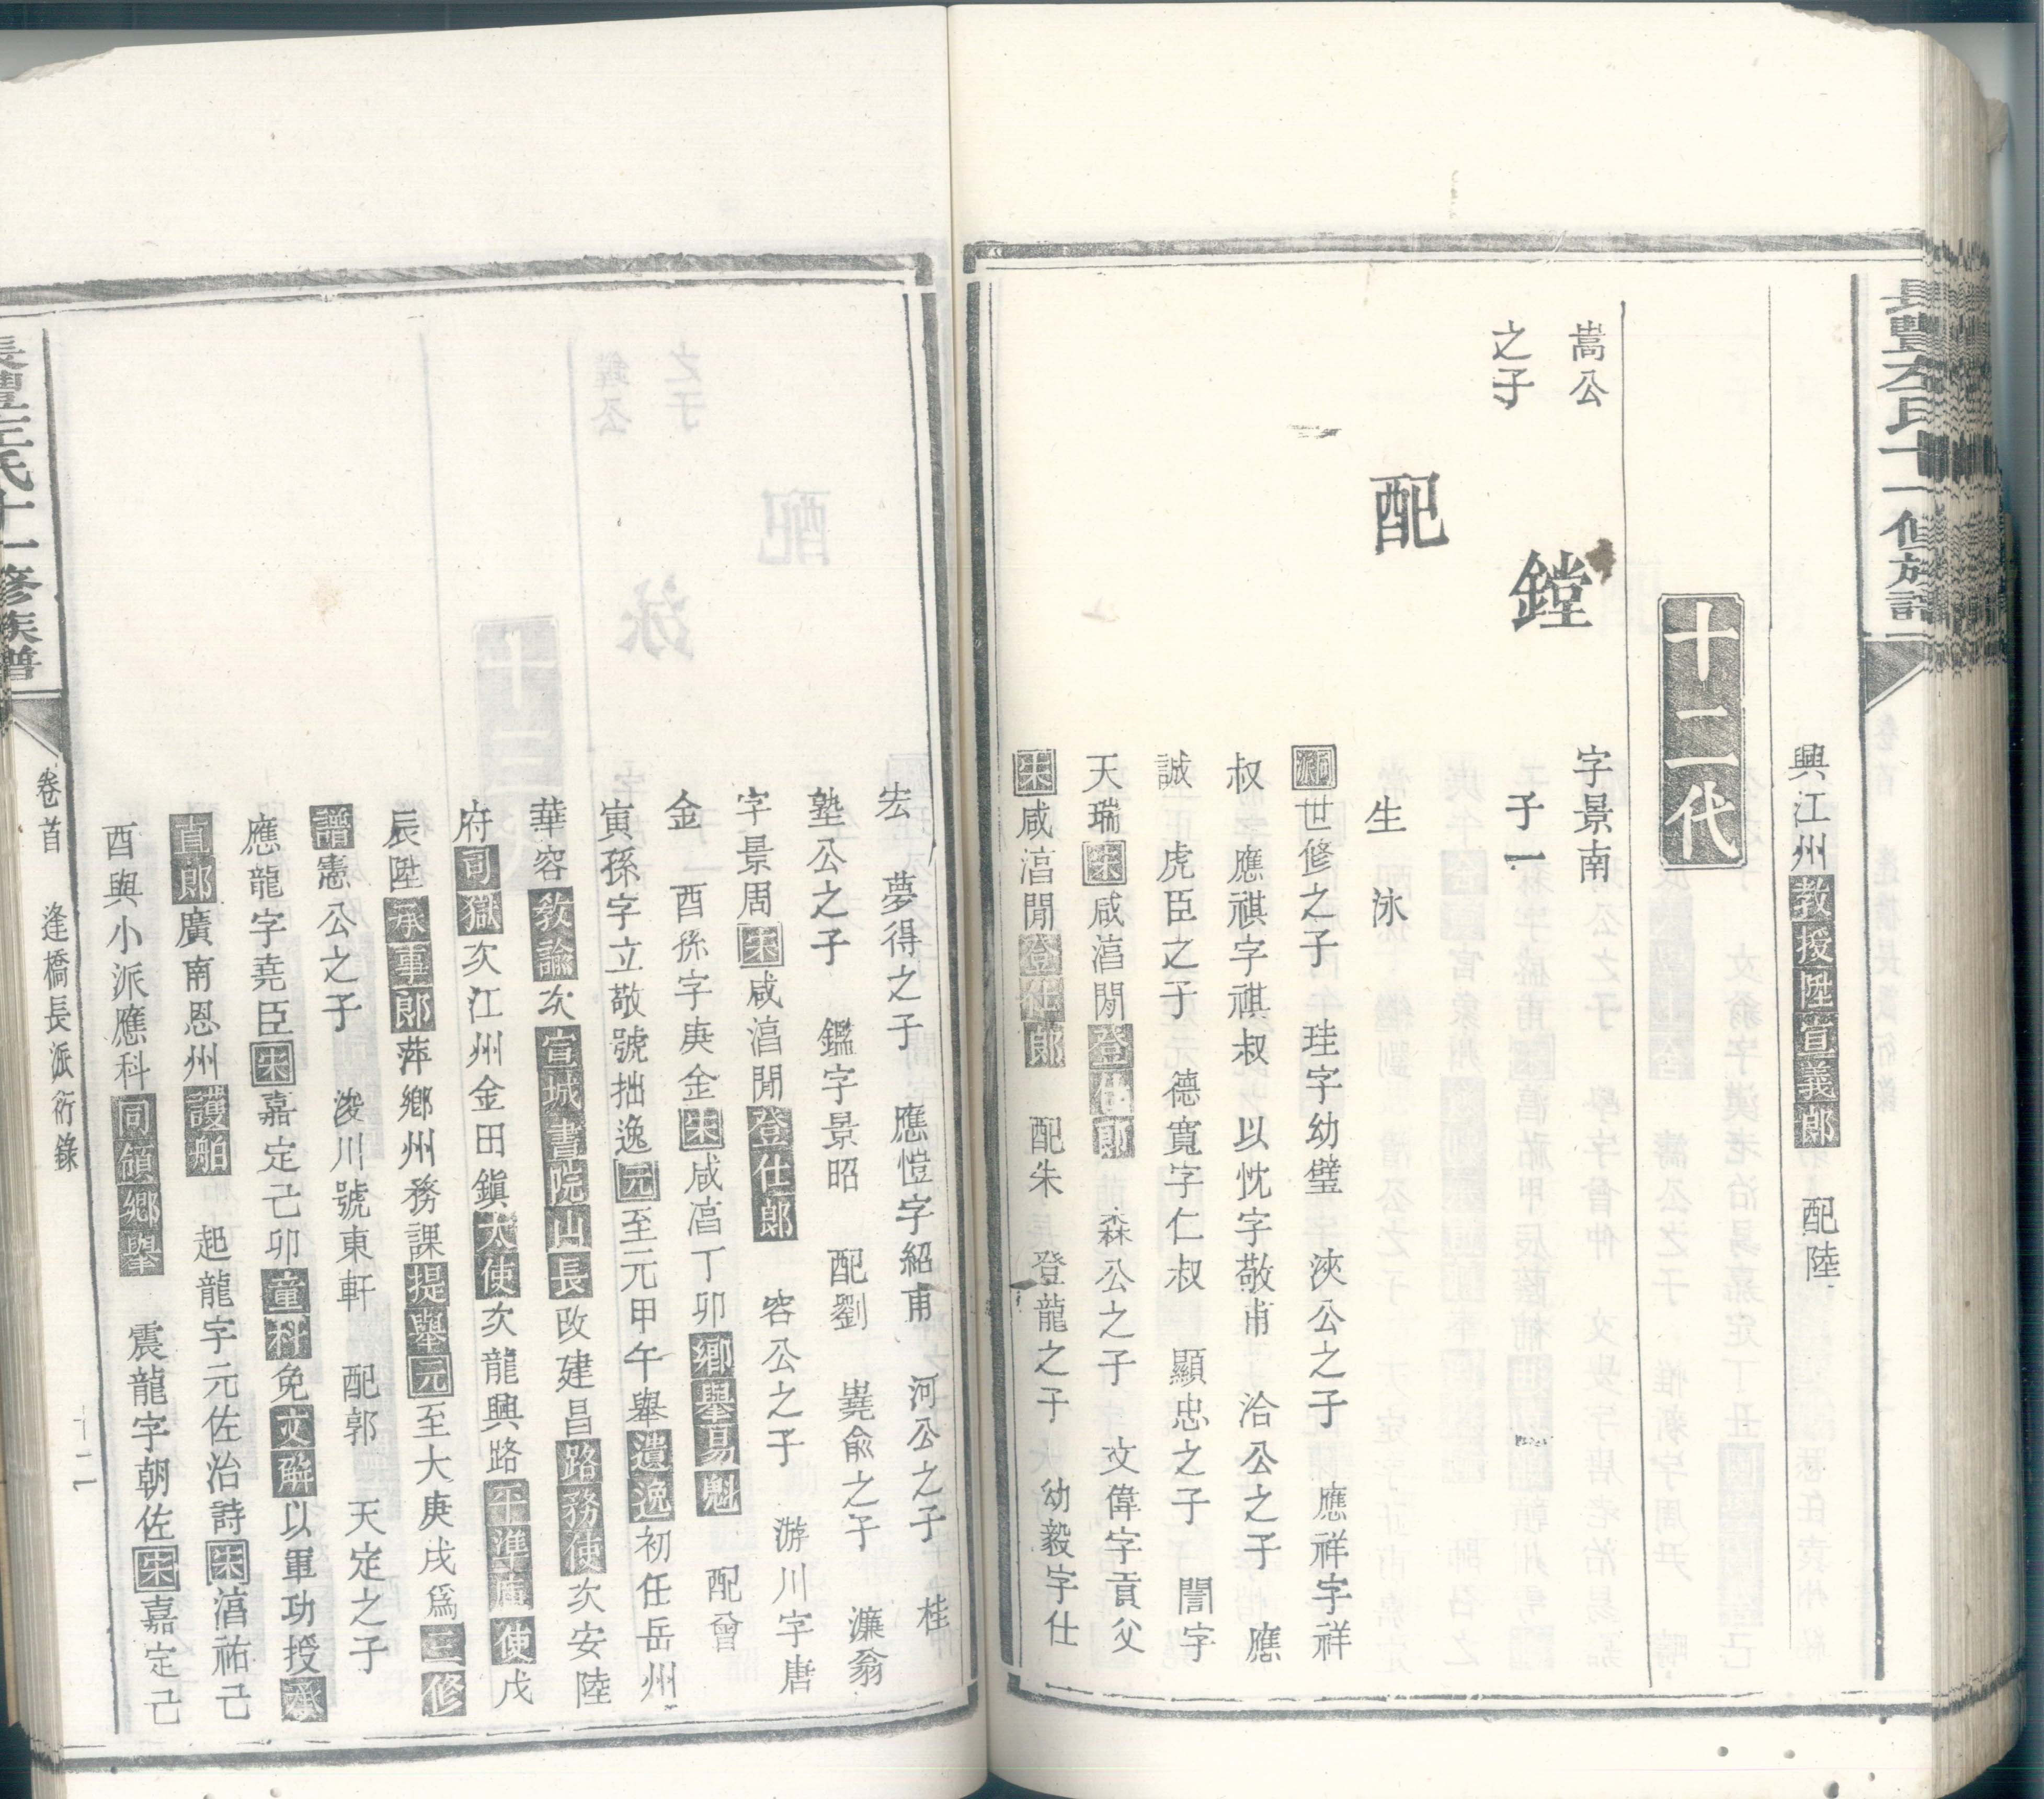 長豐左氏十一修族譜
興江州教授陞宣義郎 配陸
十二代
嵩公 字景南
之子 鏜 子一
配 生 泳
派 世修之子 珪字幼璧 浹公之子 應祥字祥
叔 應祺字祺叔 以忱字敬甫 洽公之子 應
誠 虎臣之子 德寬字仁叔 顯忠之子 誾字
天瑞宋咸淳閒登仕郎 森公之子 文偉字貢父
宋咸淳閒登仕郎 配朱 登龍之子 幼毅字仕
宏 夢得之子 應愷字紹甫 河公之子 桂
塾公之子 鑑字景昭 配劉 堯俞之子 濂翁
字景周宋咸淳閒登仕郎 容公之子 游川字唐
金 酉孫字庚金宋咸淳丁卯鄉舉易魁 配曾
寅孫字立敬號拙逸元至元甲午舉遺逸初任岳州
華容教諭次宣城書院山長改建昌路務使次安陸
府司獄次江州金田鎮大使次龍興路平準庫使戊
辰陞承事郎萍鄉州務課提舉元至大庚戌爲三修
譜 憲公之子 浚川號東軒 配郭 天定之子
應龍字堯臣宋嘉定己卯童科免文解以軍功授承
直郎廣南恩州護舶 起龍字元佐治詩宋淳祐己
酉與小派應科同領鄉舉 震龍字朝佐宋嘉定己
長豐左氏十一修族譜 卷首 逢橋長派衍錄 十二